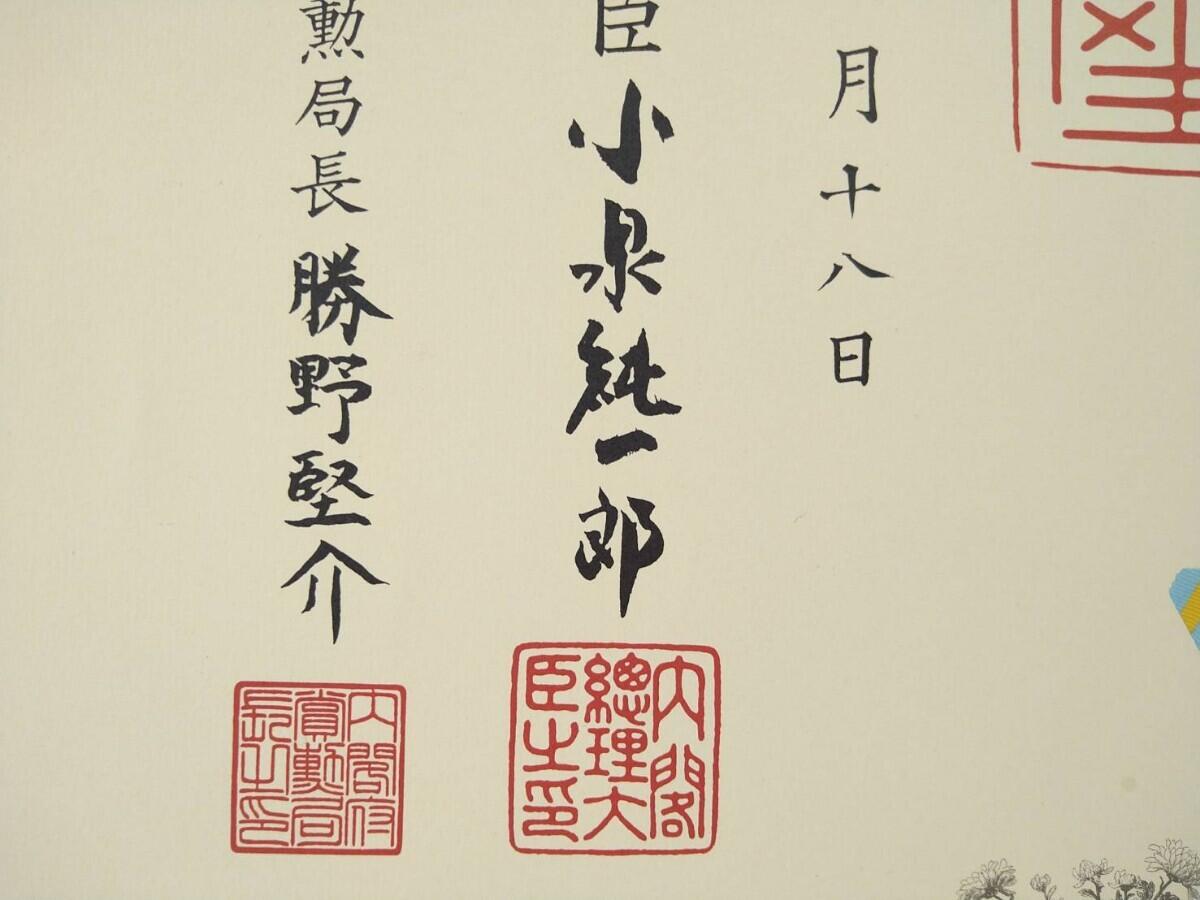 月十八日
臣小泉純一郎
內閣總理大臣之印
勲局長勝野堅介
内閣府賞勲局長之印